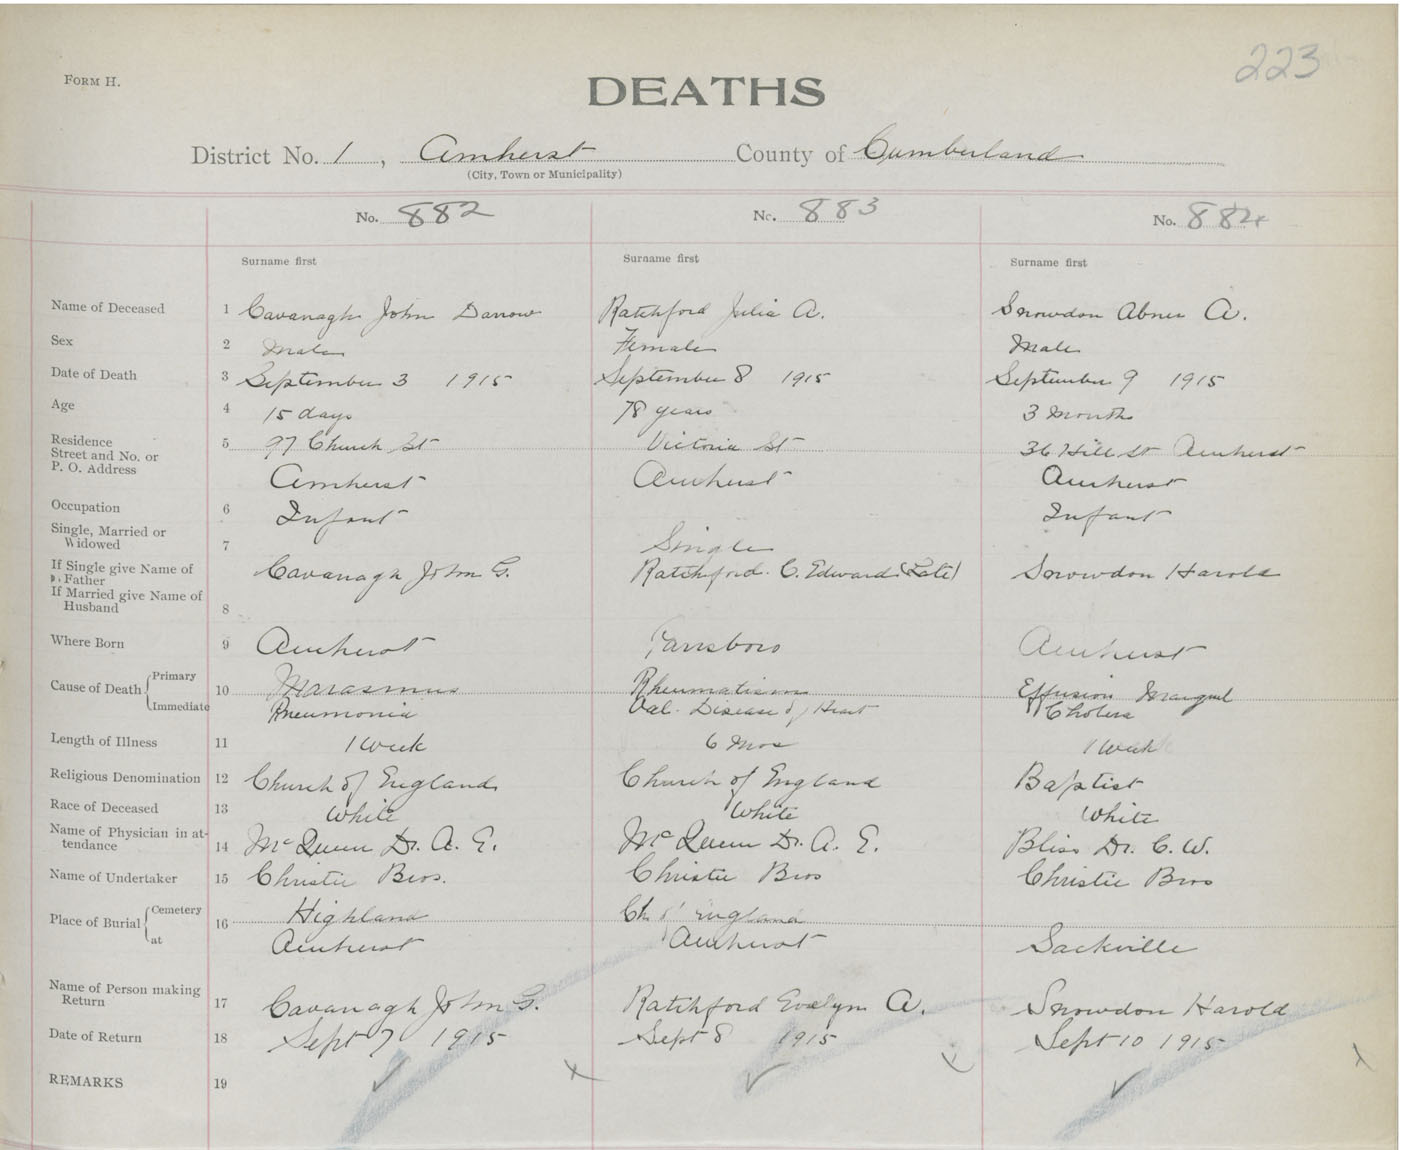 223
FORM H.
DEATHS
District No. 1, Amherst County of Cumberland
(City, Town or Municipality)
No. 882 No. 883 No. 884
Surname first Surname first Surname first
Name of Deceased 1 Cavanagh John Darrow Ratchford Julia A. Snowdon Abner A.
Sex 2 Male Female Male
Date of Death 3 September 3 1915 September 8 1915 September 9 1915
Age 4 15 days 78 years 3 Months
Residence
Street and No. or 5 97 Church St Victoria St 36 Hill St Amherst
P. O. Address Amherst Amherst Amherst
Occupation 6 Infant Infant
Single, Married or
Widowed 7 Single
If Single give Name of
Father Cavanagh John G. Ratchford C. Edward (Late) Snowdon Harold
If Married give Name of
Husband 8
Where Born 9 Amherst Parrsboro Amherst
Cause of Death Primary 10 Marasmus Rheumatism Effusion
Immediate Pneumonia Val. Disease of Heart Cholera
Length of Illness 11 1 Week 6 Mos 1 Week
Religious Denomination 12 Church of England Church of England Baptist
Race of Deceased 13 White White White
Name of Physician in at-
tendance 14 McQueen Dr. A. E. McQueen Dr. A. E. Bliss Dr. C. W.
Name of Undertaker 15 Christie Bros. Christie Bros Christie Bros
Place of Burial Cemetery 16 Highland Ch of England
at Amherst Amherst Sackville
Name of Person making
Return 17 Cavanagh John G. Ratchford Evelyn A. Snowdon Harold
Date of Return 18 Sept 7 1915 Sept 8 1915 Sept 10 1915
REMARKS 19